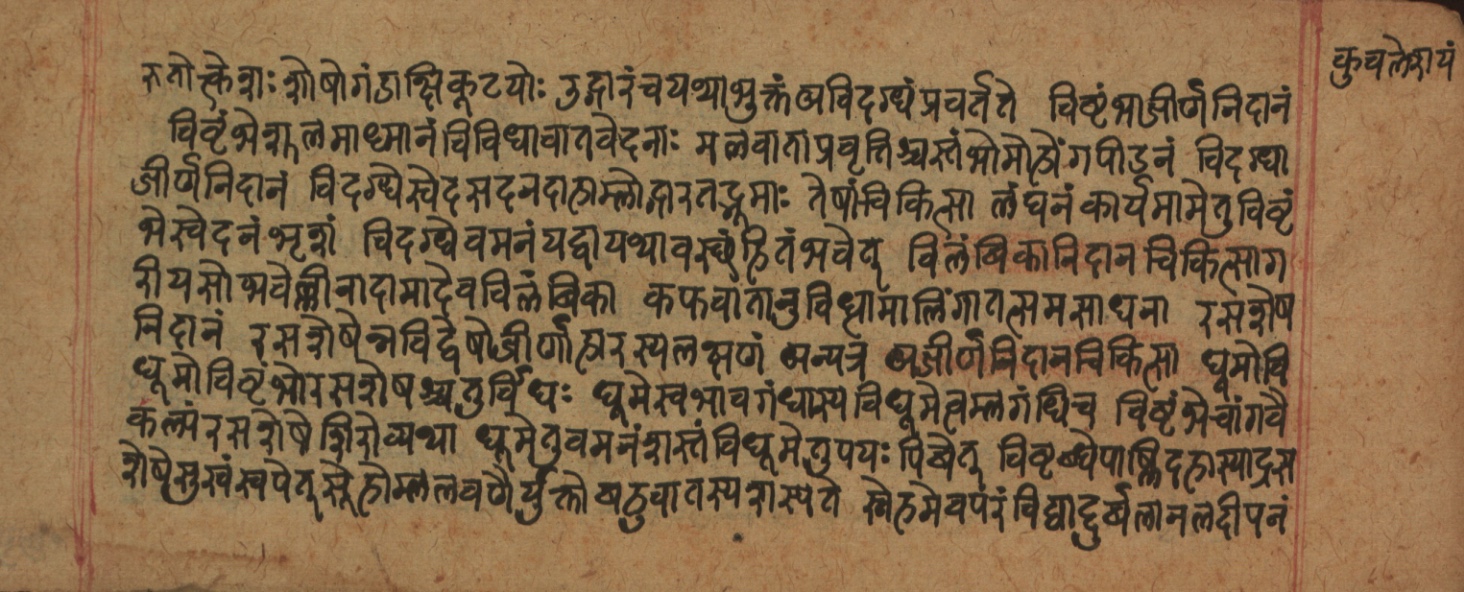 रुतोत्केशाः शोषोगंडाक्षिकूटयोः उद्गारंचयथाभुक्तंअविदग्धंप्रवर्तते विष्टंभाजीर्णनिदानं
विष्टंभेशूलमाध्मानंविविधावातवेदनाः मलवाताप्रवृत्तिश्चस्तंभोमोहोंगपीडनं विदग्धा
जीर्णनिदानं विदग्धेस्वेदसदनदाहाम्लोद्गारतद्भ्रमाः तेषांचिकित्सा लंघनंकार्यमामेतुविष्टं
भेस्वेदनंभृशं विदग्धेवमनंयद्वायथावस्थंहितंभवेत् विलंबिकानिदानचिकित्साग
रीयसोभवेल्लीनादामादेवविलंबिका कफवातानुविधामालिंगातत्समसाधना रसशेष
निदानं रसशेषेन्नविद्वेषोजीर्णाहारस्यलक्षणं अन्यत्र अजीर्णनिदानचिकित्सा धूमोवि
धूमोविष्टंभोरसशेषश्चतुर्विधः धूमेस्वभावगंधास्यविधूमेत्वम्लगंधिच विष्टंभेचांगवै
कल्यंरसशेषेशिरोव्यथा धूमेतुवमनंशस्तंविधूमेतुपयःपिबेत् विष्टब्धेपार्ष्णिदहास्याद्रस
शेषेसुखंस्वपेत् स्नेहोम्ललवणैर्युक्तोबहुवातस्यशस्यते स्नेहमेवपरंविद्याद्दुर्बलानलदीपनं
कुचलेशयं